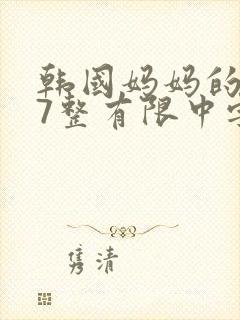 韩国妈妈的
7整有限中字
隽清